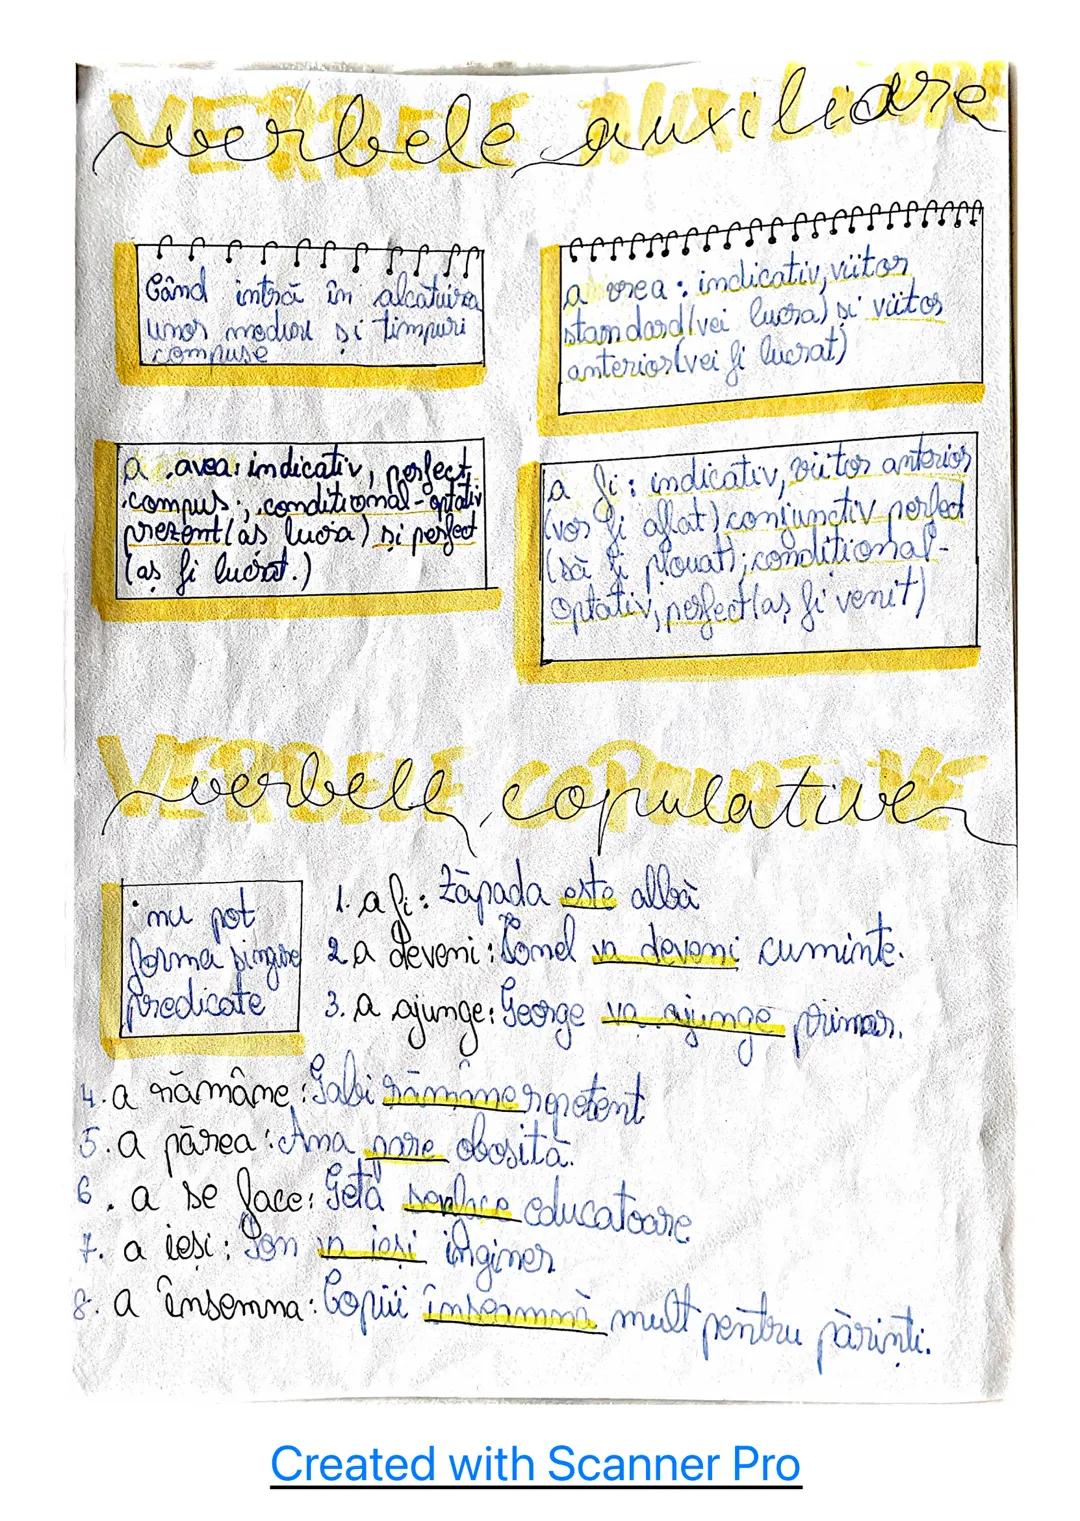 verbele auxiliare
Când intră în alcătuirea
unor moduri și timpuri
compuse
a vrea: indicativ, viitor
standard(vei lucra) și viitor
anterior(vei fi lucrat)
a avea: indicativ, perfect
compus; conditional-optativ
prezent(aș lucra) și perfect
(aș fi lucrat.)
a fi: indicativ, viitor anterior
(voi fi aflat) conjunctiv perfect
(să fi plouat); conditional-
optativ, perfect(aș fi venit)
verbele copulative
nu pot
forma singure
predicate
1. a fi: Zăpada este albă
2 a deveni: Ionel va deveni cuminte.
3. a ajunge: George va ajunge primar.
4. a rămâne: Gabi rămâne repetent
5. a părea: Ana pare obosită.
6. a se face: Geta se face educatoare
7. a ieși: Ion va ieși inginer
8. a însemna: Copiii înseamnă mult pentru părinți.
Created with Scanner Pro